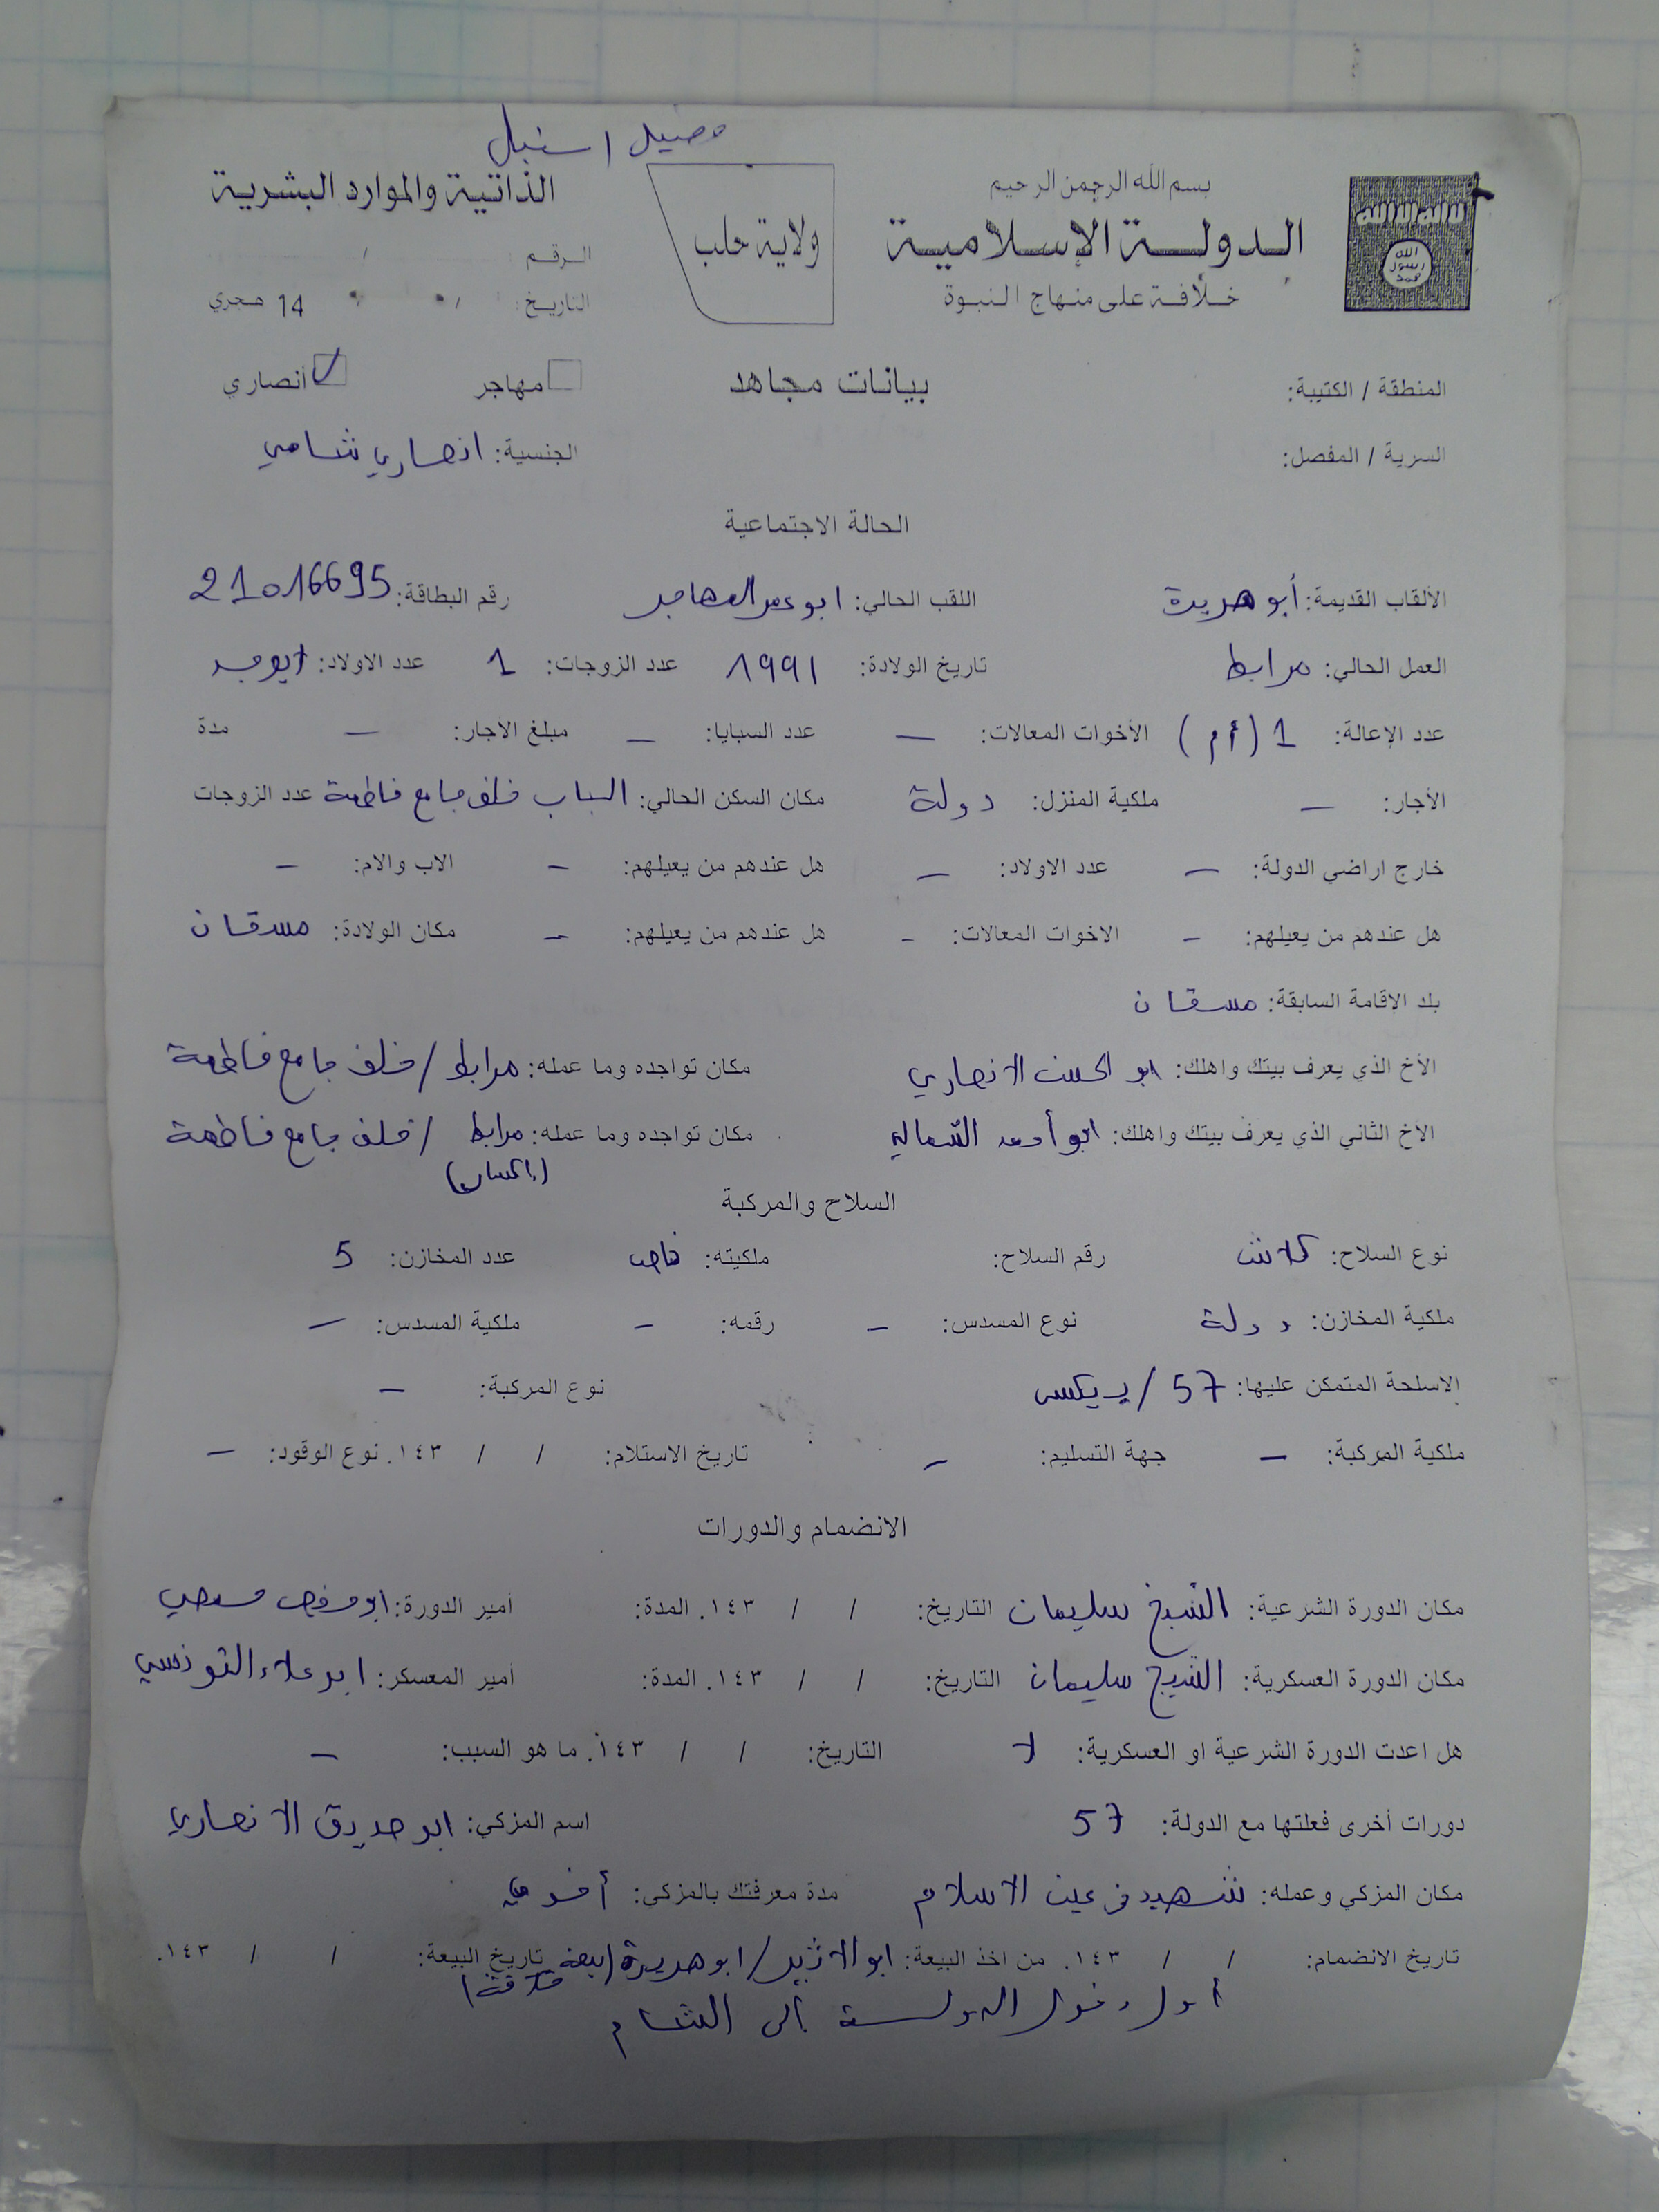 بسم الله الرحمن الرحيم
الدولة الإسلامية
خلافة على منهاج النبوة
لا إله إلا الله
الله رسول محمد
ولاية حلب
الذاتية والموارد البشرية
الرقم: /
التاريخ: / 14 هجري
المنطقة / الكتيبة: بيانات مجاهد مهاجر أنصاري
السرية / المفصل: الجنسية: انصاري شامي
الحالة الاجتماعية
الألقاب القديمة: أبو هريرة اللقب الحالي: ابو عمر المهاجر رقم البطاقة: 21016695
العمل الحالي: مرابط تاريخ الولادة: 1991 عدد الزوجات: 1 عدد الاولاد: لايوجد
عدد الإعالة: 1 (أم) الأخوات المعالات: – عدد السبايا: – مبلغ الأجار: – مدة
الأجار: – ملكية المنزل: دولة مكان السكن الحالي: الباب خلف جامع فاطمة عدد الزوجات
خارج اراضي الدولة: – عدد الاولاد: – هل عندهم من يعيلهم: – الاب والام: –
هل عندهم من يعيلهم: – الاخوات المعالات: – هل عندهم من يعيلهم: – مكان الولادة: مسقان
بلد الإقامة السابقة: مسقان
الأخ الذي يعرف بيتك واهلك: ابو الحسن الانصاري مكان تواجده وما عمله: مرابط / خلف جامع فاطمة
الأخ الثاني الذي يعرف بيتك واهلك: ابو أحمد الشمالي مكان تواجده وما عمله: مرابط / خلف جامع فاطمة
السلاح والمركبة
نوع السلاح: كلاش رقم السلاح: ملكيته: خاص عدد المخازن: 5
ملكية المخازن: دولة نوع المسدس: – رقمه: – ملكية المسدس: –
الاسلحة المتمكن عليها: 57 / بيكسي نوع المركبة: –
ملكية المركبة: – جهة التسليم: – تاريخ الاستلام: / / ١٤٣. نوع الوقود: –
الانضمام والدورات
مكان الدورة الشرعية: الشيخ سليمان التاريخ: / / ١٤٣. المدة: أمير الدورة: ابو
مكان الدورة العسكرية: الشيخ سليمان التاريخ: / / ١٤٣. المدة: أمير المعسكر: ابو علاء التونسي
هل اعدت الدورة الشرعية او العسكرية: لا التاريخ: / / ١٤٣. ما هو السبب: –
دورات أخرى فعلتها مع الدولة: 57 اسم المزكي: ابو صديق الانصاري
مكان المزكي وعمله: شهيد في عين الاسلام مدة معرفتك بالمزكي: أخوي
تاريخ الانضمام: / / ١٤٣. من اخذ البيعة: ابو الاثير / ابو هريرة (بيعة تاريخ البيعة: / / ١٤٣.
أول دخول الدولة الى الشام